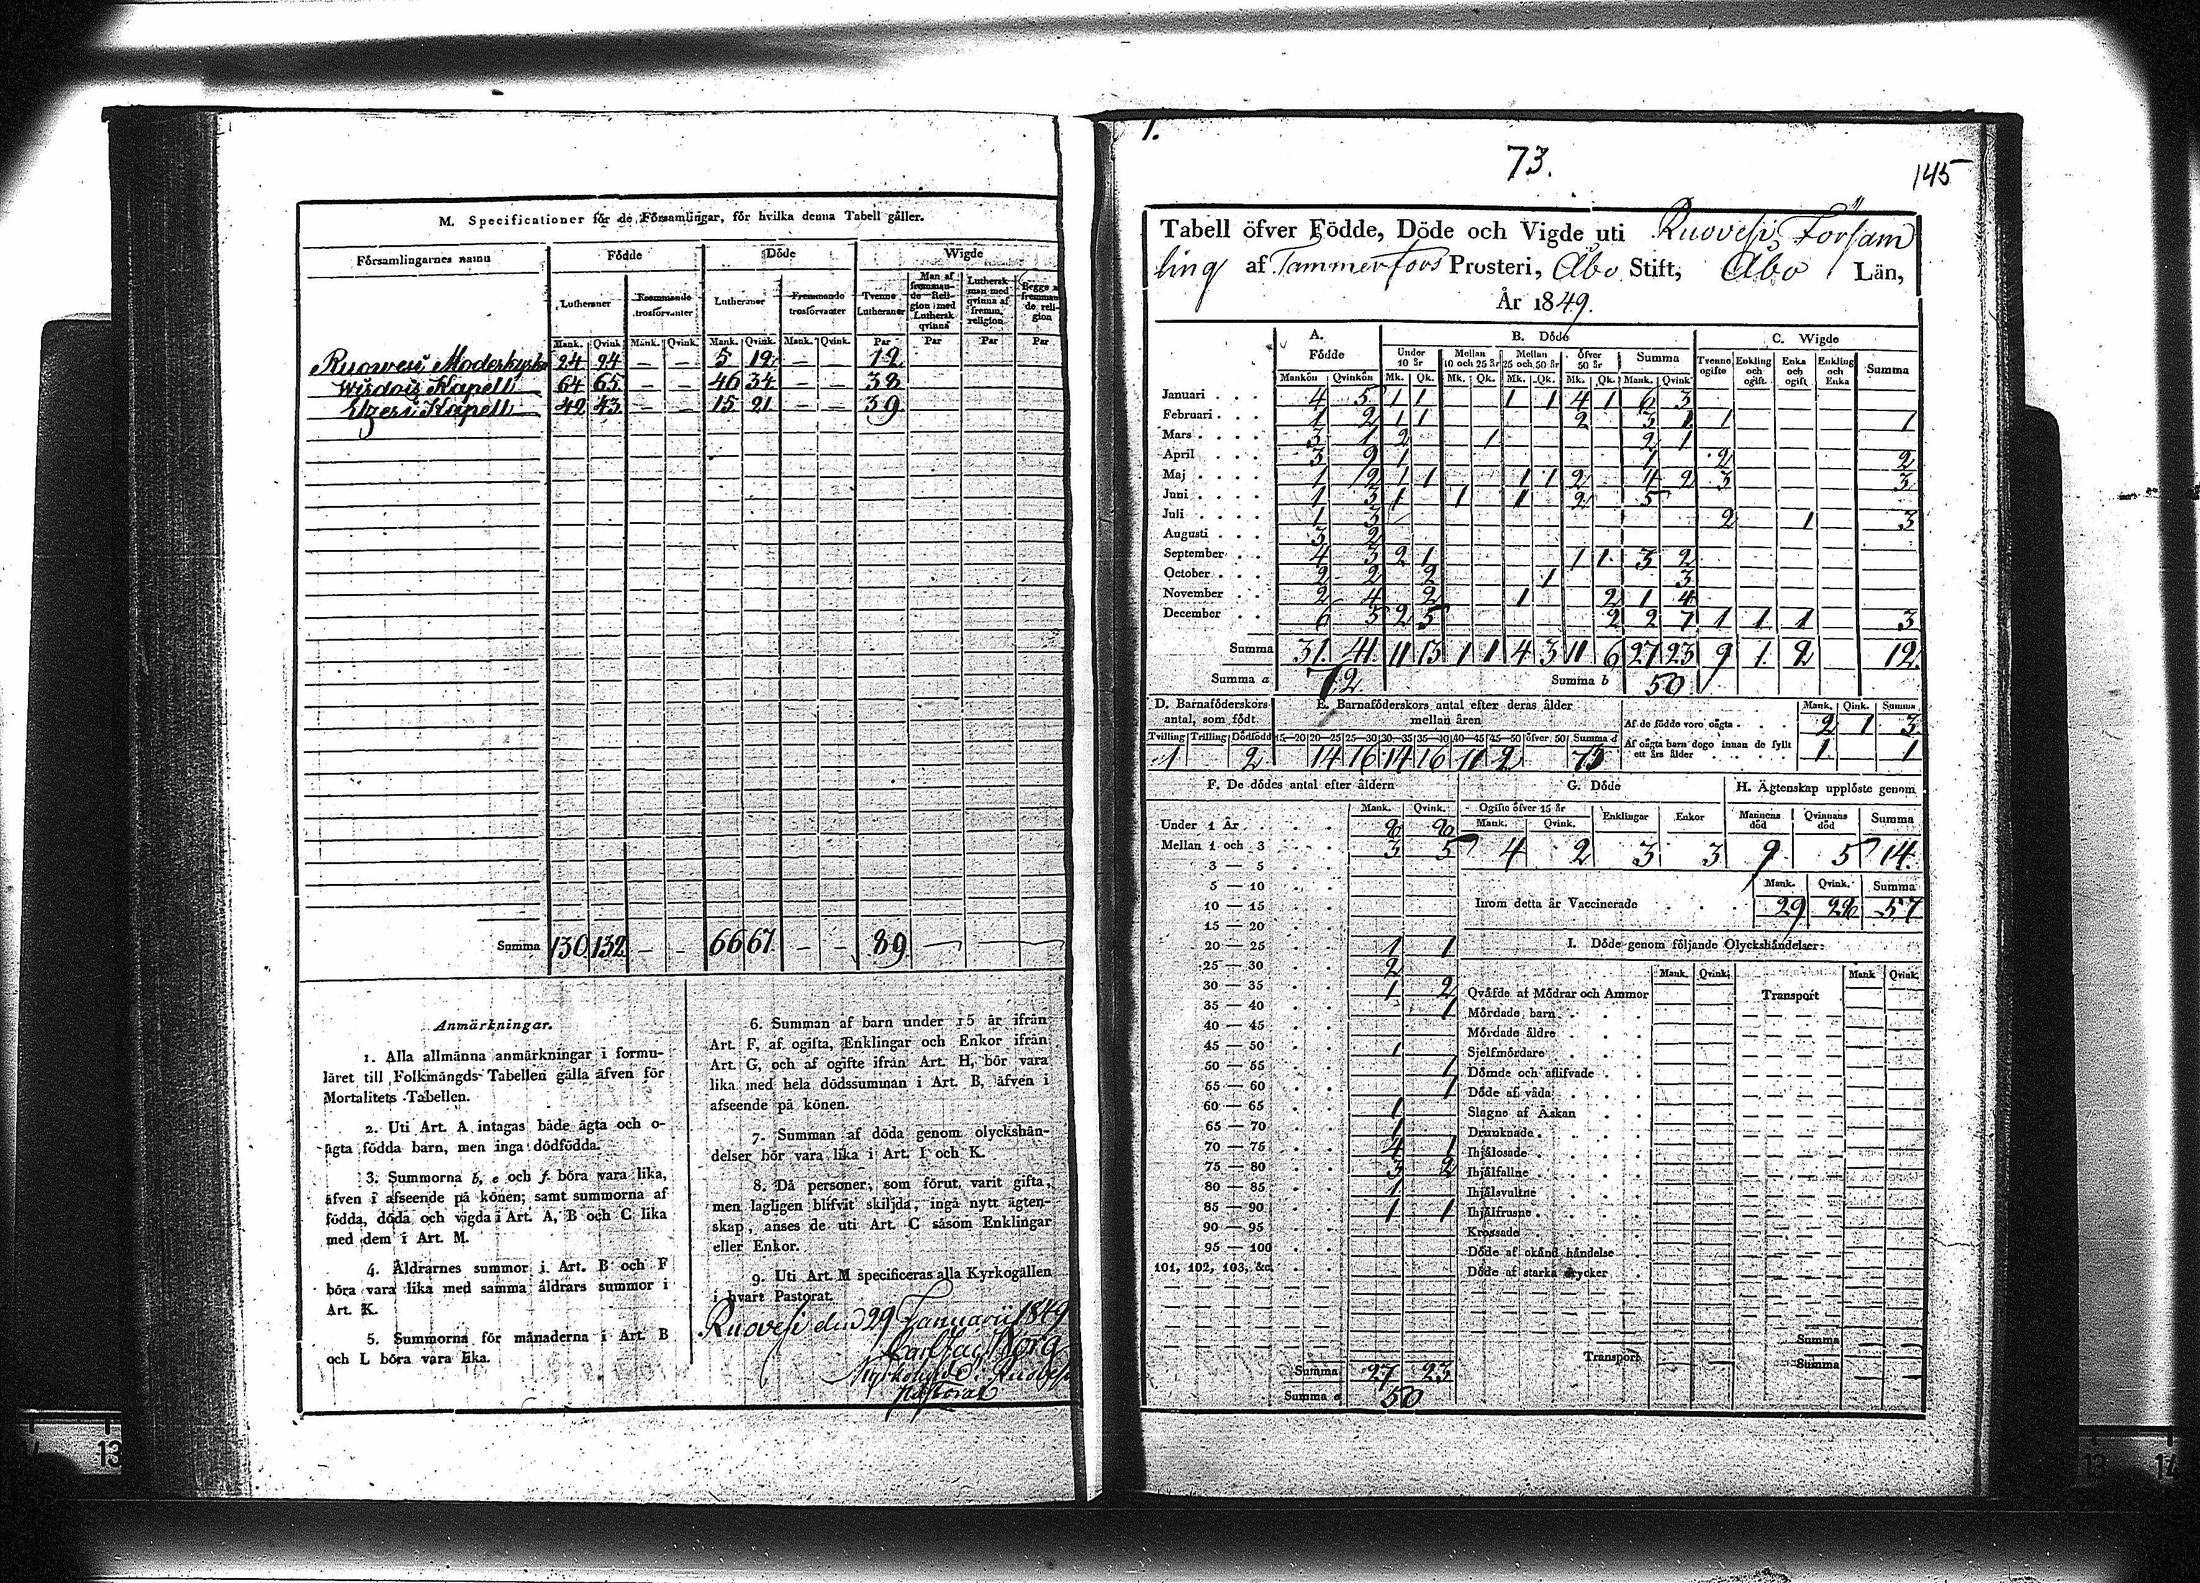 M. Specificationer för de Församlingar, för hvilka denna Tabell gäller.
Församlingarnes namn
Födde Döde Wigde
Lutheraner Fremmande trosförvanter Lutheraner Fremmande trosförvanter Tvenne Lutheraner Man af fremmande Religion med Luthersk qvinna Luthersk man med qvinna af fremm. religion Begge af fremmande religion
Mank. Qvink. Mank. Qvink. Mank. Qvink. Mank. Qvink. Par Par Par Par
Ruowesi Moderkyrka 24 24 — — 5 12 — — 12
Wirdois Kapell 64 65 — — 46 34 — — 38
Etzeri Kapell 42 43 — — 15 21 — — 39
Summa 130 132 — — 66 67 — — 89
Anmärkningar.
1. Alla allmänna anmärkningar i formu-
läret till Folkmängds-Tabellen gälla äfven för
Mortalitets Tabellen.
2. Uti Art. A intagas både ägta och o-
ägta födda barn, men inga dödfödda.
3. Summorna b, e och f böra vara lika,
äfven i afseende på könen; samt summorna af
födda, döda och vigda i Art. A, B och C lika
med dem i Art. M.
4. Åldrarnes summor i Art. B och F
böra vara lika med samma åldrars summor i
Art. K.
5. Summorna för månaderna i Art. B
och L böra vara lika.
6. Summan af barn under 15 år ifrån
Art. F, af ogifta, Enklingar och Enkor ifrån
Art. G, och af ogifte ifrån Art. H, bör vara
lika med hela dödssumman i Art. B, äfven i
afseende på könen.
7. Summan af döda genom olyckshän-
delser bör vara lika i Art. I och K.
8. Då personer, som förut varit gifta,
men lagligen blifvit skiljda, ingå nytt ägten-
skap, anses de uti Art. C såsom Enklingar
eller Enkor.
9. Uti Art. M specificeras alla Kyrkogällen
i hvart Pastorat.
Ruovesi den 29 Januarii 1849
Pastorat
1.
73.
145
Tabell öfver Födde, Döde och Vigde uti Ruovesi Försam
ling af Tammerfors Prosteri, Åbo Stift, Åbo Län,
År 1849.
A. Födde B. Döde C. Wigde
Under 10 år Mellan 10 och 25 år Mellan 25 och 50 år öfver 50 år Summa Tvenne ogifte Enkling och ogift. Enka och ogift Enkling och Enka Summa
Mankön Qvinkön Mk. Qk. Mk. Qk. Mk. Qk. Mk. Qk. Mank. Qvink.
Januari 4 5 1 1 1 1 4 1 6 3
Februari 1 2 1 1 2 3 1 1 1
Mars 3 1 2 1 2 1
April 3 9 1 1 2 2
Maj 1 12 1 1 1 1 2 4 2 3 3
Juni 1 3 1 1 1 2 5
Juli 1 3 2 1 3
Augusti 3 2
September 4 3 2 1 1 1 3 2
October 2 2 2 1 3
November 2 4 2 1 2 1 4
December 6 5 2 5 2 2 7 1 1 1 3
Summa 31. 41. 11 13 1 1 4 3 11 6 27 23 9 1. 2 12.
Summa a 72. Summa b 50
D. Barnaföderskors antal, som födt
Tvilling Trilling Dödfödd
1 2
E. Barnaföderskors antal efter deras ålder mellan åren
15—20 20—25 25—30 30—35 35—40 40—45 45—50 öfver 50 Summa d
14 16 14 16 11 2 73
Mank. Qink. Summa
Af de födde voro oägta 2 1 3
Af oägta barn dogo innan de fyllt ett års ålder 1 1
F. De dödes antal efter åldern
Mank. Qvink.
Under 1 År 8 8
Mellan 1 och 3 3 5
3 — 5
5 — 10
10 — 15
15 — 20
20 — 25 1 1
25 — 30 2
30 — 35 1 2
35 — 40 1
40 — 45
45 — 50 1
50 — 55 1
55 — 60 1
60 — 65 1
65 — 70 1
70 — 75 4 1
75 — 80 3 2
80 — 85 1
85 — 90 1 1
90 — 95
95 — 100
101, 102, 103, &c.
Summa 27 23
Summa e 50
G. Döde
Ogifte öfver 15 år Enklingar Enkor
Mank. Qvink.
4 2 3 3
H. Ägtenskap upplöste genom
Mannens död Qvinnans död Summa
9 5 14.
Mank. Qvink. Summa
Inom detta år Vaccinerade 29 28 57
I. Döde genom följande Olyckshändelser:
Mank. Qvink. Mank Qvink.
Qväfde af Mödrar och Ammor Transport
Mördade barn
Mördade äldre
Sjelfmördare
Dömde och aflifvade
Döde af våda
Slagne af Åskan
Drunknade
Ihjälosade
Ihjälfallne
Ihjälsvultne
Ihjälfrusne
Krossade
Döde af okänd händelse
Döde af starka drycker
Summa
Transport Summa
13
13
14